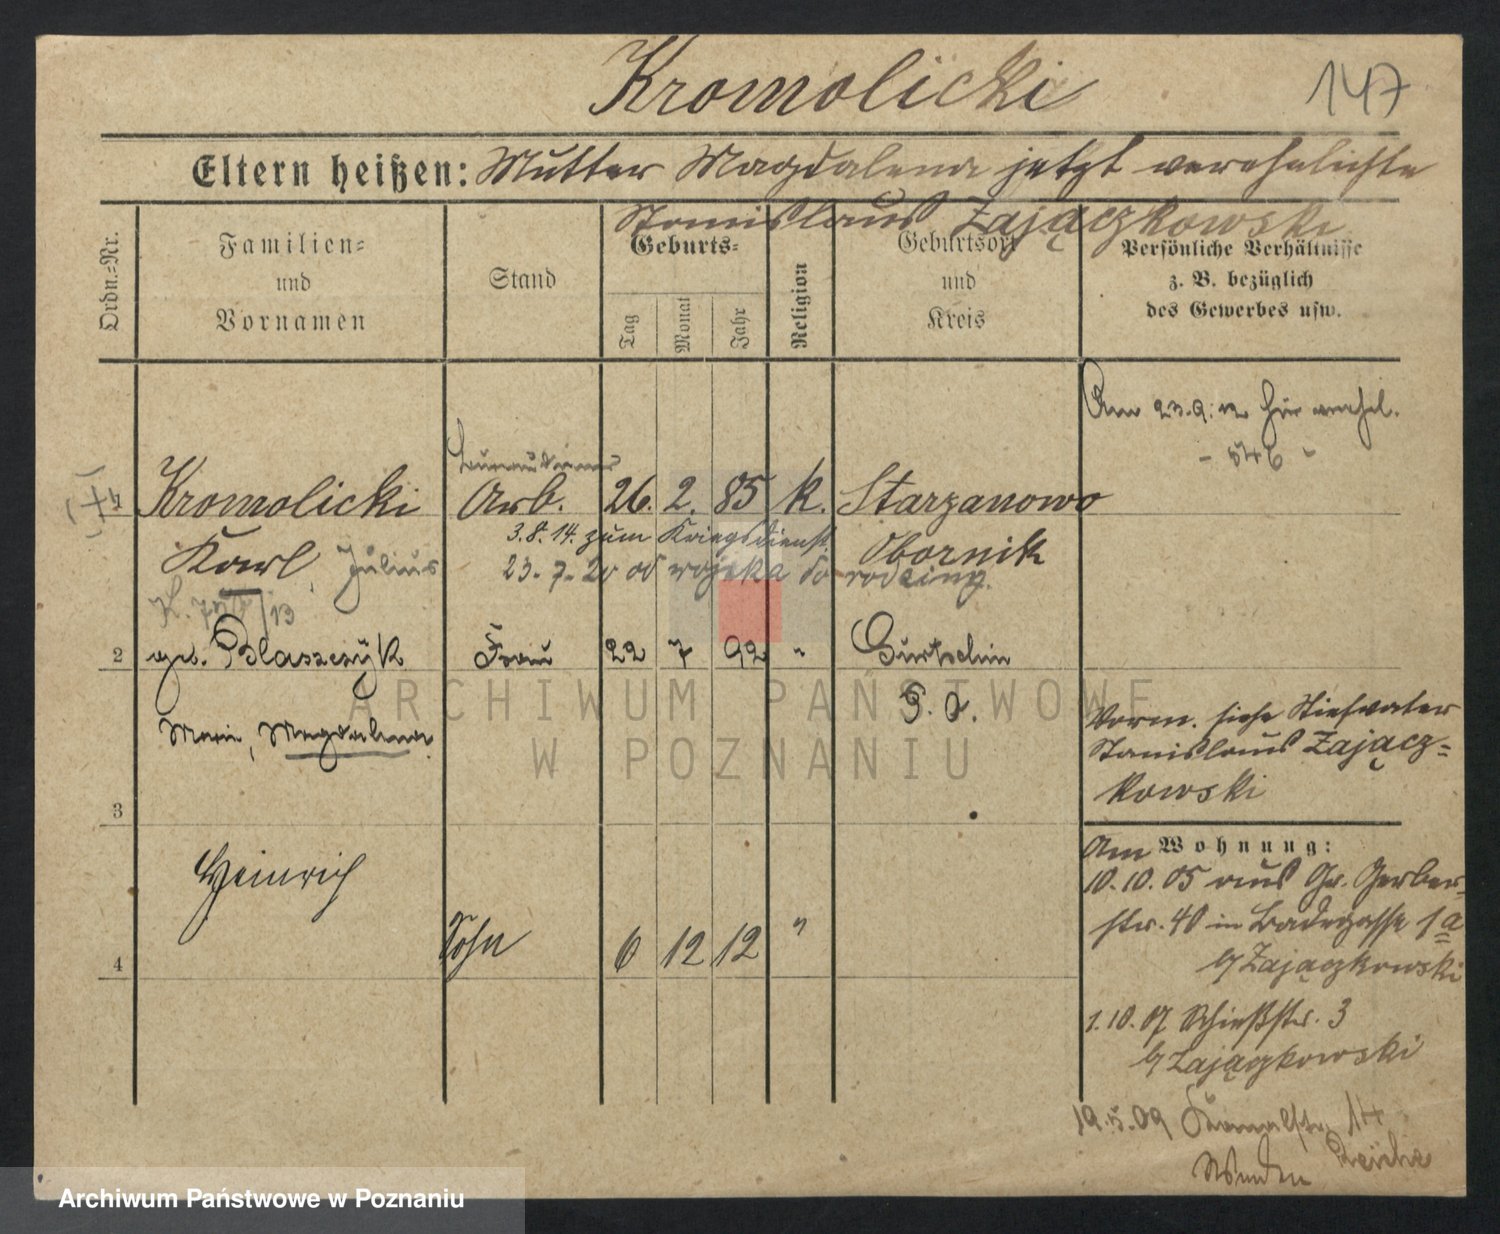 Kromolicki
147
Eltern heißen: Mutter Magdalena jetzt verehelichte
Stanislaus Zajączkowski
Ordn.=Nr.
Familien=
und
Vornamen
Stand
Geburts=
Tag
Monat
Jahr
Religion
Geburtsort
und
Kreis
Persönliche Verhältnisse
z. B. bezüglich
des Gewerbes usw.
Am 23.9.12 hier verehel.
- 546 -
Kromolicki Arb. 26. 2. 85 k. Starzanowo
3.8.14. zum Kriegsdienst
Karl, Julius
Obornik
23.7.20 od wojska do rodziny.
2 geb. Blaszczÿk Frau 22 7 92 " Gurtschin
P. O.
Marie, Magdalena
Vorm. siehe Stiefvater
Stanislaus Zającz=
kowski
3
Wohnung:
Am
10.10.05 aus Gr. Gerber=
str. 40 in Badegasse 1a
b/ Zajączkowski
Heinrich
4 Sohn 6 12 12 "
1.10.07 Schießstr. 3
b/ Zajączkowski
19.5.09 Kanalstr. 14
ARCHIWUM PAŃSTWOWE
W POZNANIU
Archiwum Państwowe w Poznaniu